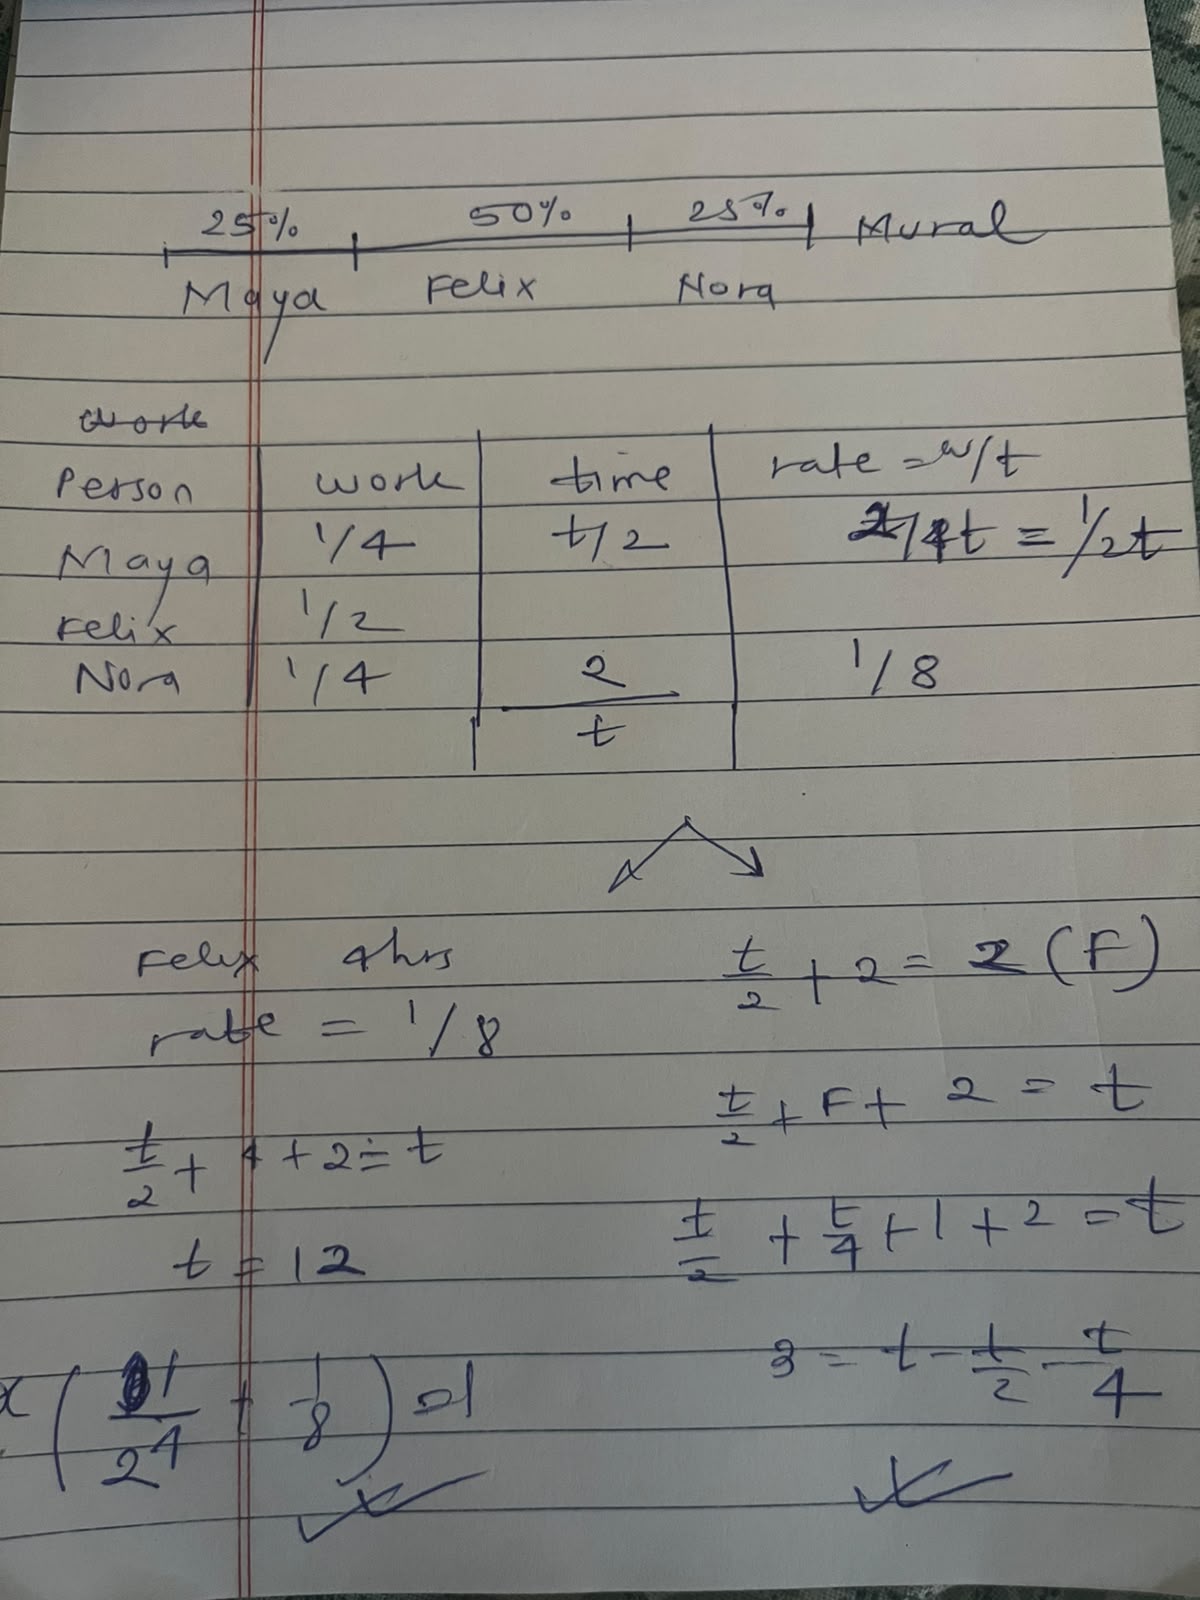 25% 50% 25% Mural
Maya Felix Nora
work
Person work time rate = w/t
Maya 1/4 t/2 2/4t = 1/2t
Felix 1/2
Nora 1/4 2 1/8
t
Felix 4hrs
rate = 1/8
t/2 + 4 + 2 = t
t = 12
x ( 1/24 + 1/8 ) = 1
t/2 + 2 = 2 (F)
t/2 + F + 2 = t
t/2 + t/4 + 1 + 2 = t
3 = t - t/2 - t/4